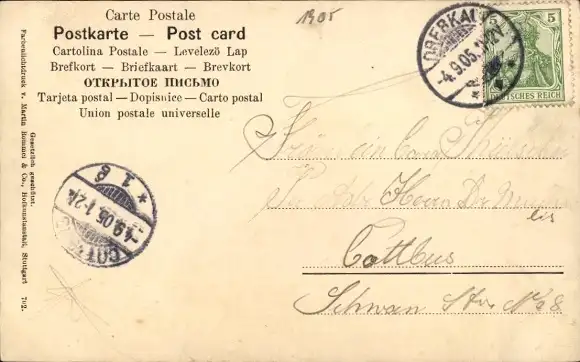 Carte Postale
Postkarte — Post card
Cartolina Postale — Levelezö Lap
Brefkort — Briefkaart — Brevkort
ОТКРЫТОЕ ПИСЬМО
Tarjeta postal — Dopisnice — Carto postal
Union postale universelle
1905
-4.9.05.
5 5
DEUTSCHES REICH
Fräulein
Herrn Dr
Cottbus
Schwan Str No 8
* 1 g
-4.9.05.1-2N.
Gesetzlich geschützt.
Farbenlichtdruck v. Martin Rommel & Co., Hofkunstanstalt, Stuttgart 702.